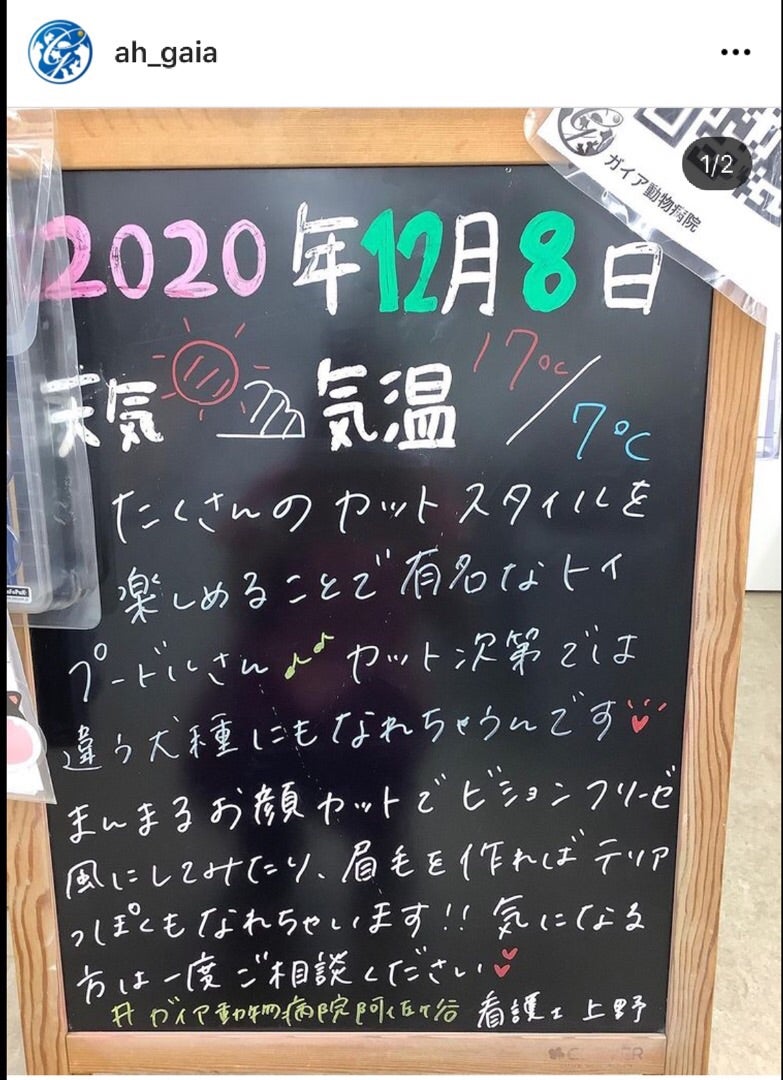 ah_gaia
1/2
ガイア動物病院
2020年12月8日
天気 気温 17℃/7℃
たくさんのカットスタイルを
楽しめることで有名なトイ
プードルさん♪♪ カット次第では
違う犬種にもなれちゃうんです
まんまるお顔カットでビションフリーゼ
風にしてみたり、眉毛を作ればテリア
っぽくもなれちゃいます!! 気になる
方は一度ご相談ください
#ガイア動物病院阿佐ヶ谷 看護士 上野